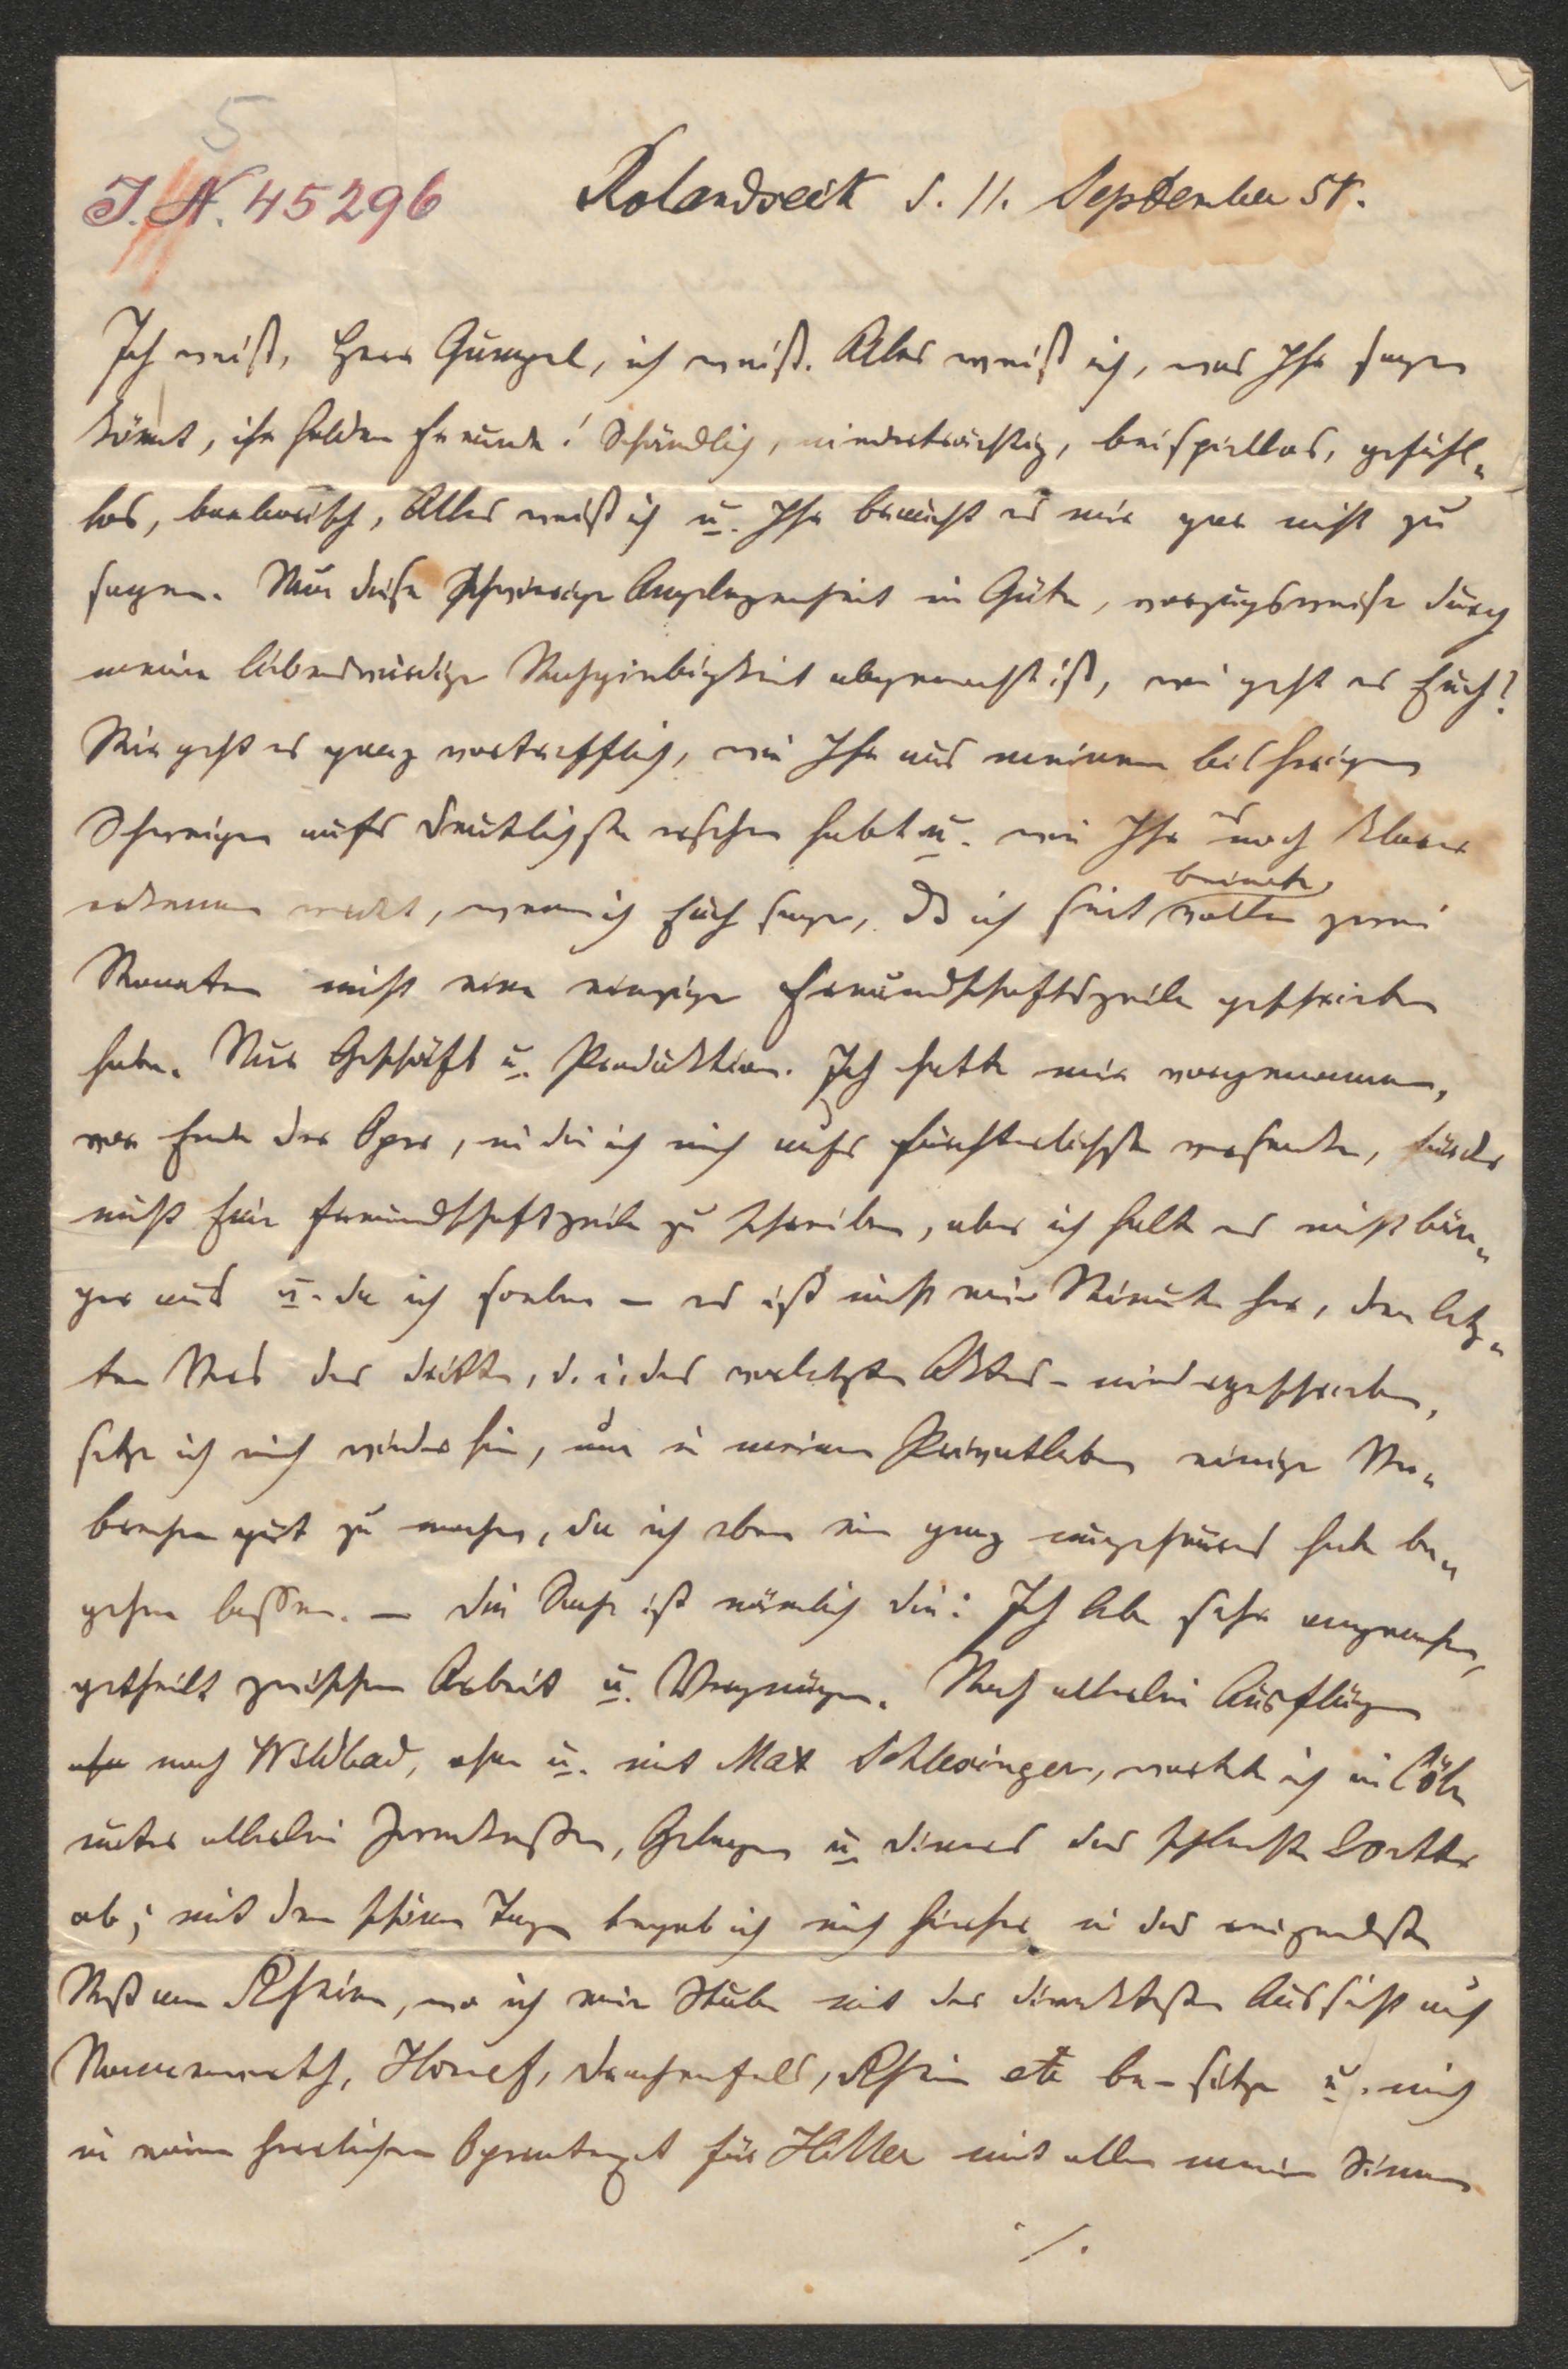 5
J. N. 45296
Rolandseck d. 11. September 51.
Ich weiß, Herr Gumpel, ich weiß. Alles weiß ich, was Ihr sagen
könnt, ihr holden Freunde! Schändlich, niederträchtig, beispiellos, gefühl-
los, barbarisch, Alles weiß ich u. Ihr braucht es mir gar nicht zu
sagen. Nun diese schwierige Angelegenheit in Güte, vorzugsweise durch
meine liebenswürdige Nachgiebigkeit abgemacht ist, wie geht es Euch?
Mir geht es ganz vortrefflich, wie Ihr aus meinem bisherigen
Schweigen aufs deutlichste ersehen habt u. wie Ihr es noch klarer
erkennen werdet, wenn ich Euch sage, dß ich seit beinah vollen zwei
Monaten nicht eine einzige Freundschaftszeile geschrieben
habe. Nur Geschäft u. Produktion. Ich hatte mir vorgenommen,
vor Ende der Oper, in die ich mich aufs fürchterlichste versenkte,
nicht Eine Freundschaftzeile zu schreiben, aber ich halte es nicht län-
ger aus u. da ich soeben – es ist nicht eine Minute her, den letz-
ten Vers des dritten, d. i. des vorletzten Aktes – niedergeschrieben,
setze ich mich wieder hin, um in meinem Privatleben einige Ver-
brechen gut zu machen, da ich eben ein ganz ungeheures habe be-
gehen lassen. – Die Sache ist nämlich die: Ich lebe sehr angenehm,
getheilt zwischen Arbeit u. Vergnügen. Nach allerlei Ausflügen
nach Wildbad, ohne u. mit Max Schlesinger, wartete ich in Cöln
unter allerlei Zweckessen, Gelagen u. Diners das schlechte Wetter
ab; mit den schönen Tagen begab ich mich hierher in das reizendste
Nest am Rheine, wo ich eine Stube mit der direktesten Aussicht auf
Nonnenwerth, Honnef, Drachenfels, Rhein etc be-sitze u. mich
in einen herrlichen Operntext für Hiller mit allen meinen Sinnen
./.